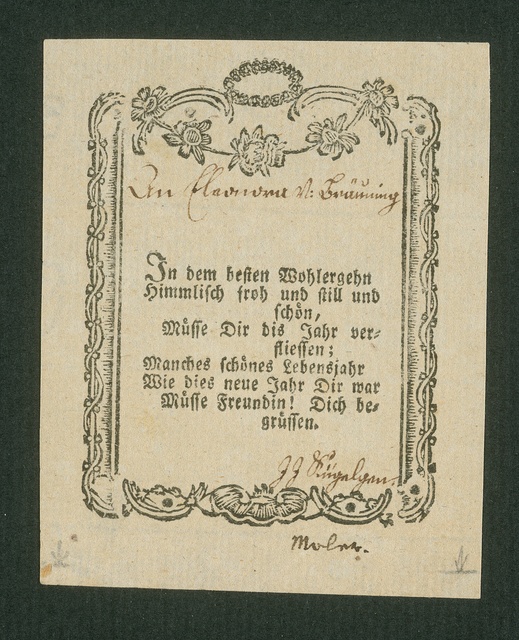 An Eleonora V. Bräuning
In dem besten Wohlergehn
Himmlisch froh und still und
schön,
Müsse Dir dis Jahr ver-
fliessen;
Manches schönes Lebensjahr
Wie dies neue Jahr Dir war
Müsse Freundin! Dich be-
grüssen.
JJ Kügelgen.
Moler.